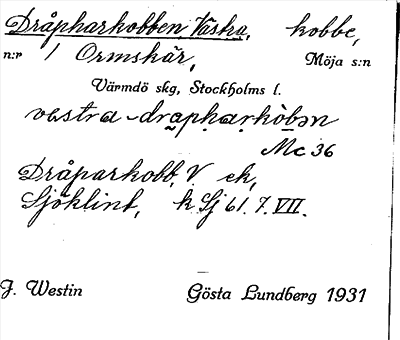 Dråpharkobben, Västra, kobbe,
n:r 1 Ormskär, Möja s:n
Värmdö skg, Stockholms l.
västra - drapharkòbən
Mc 36
Dråparkobb, V ek,
Sjöklint, k Sj 61. 7. VII.
J. Westin Gösta Lundberg 1931